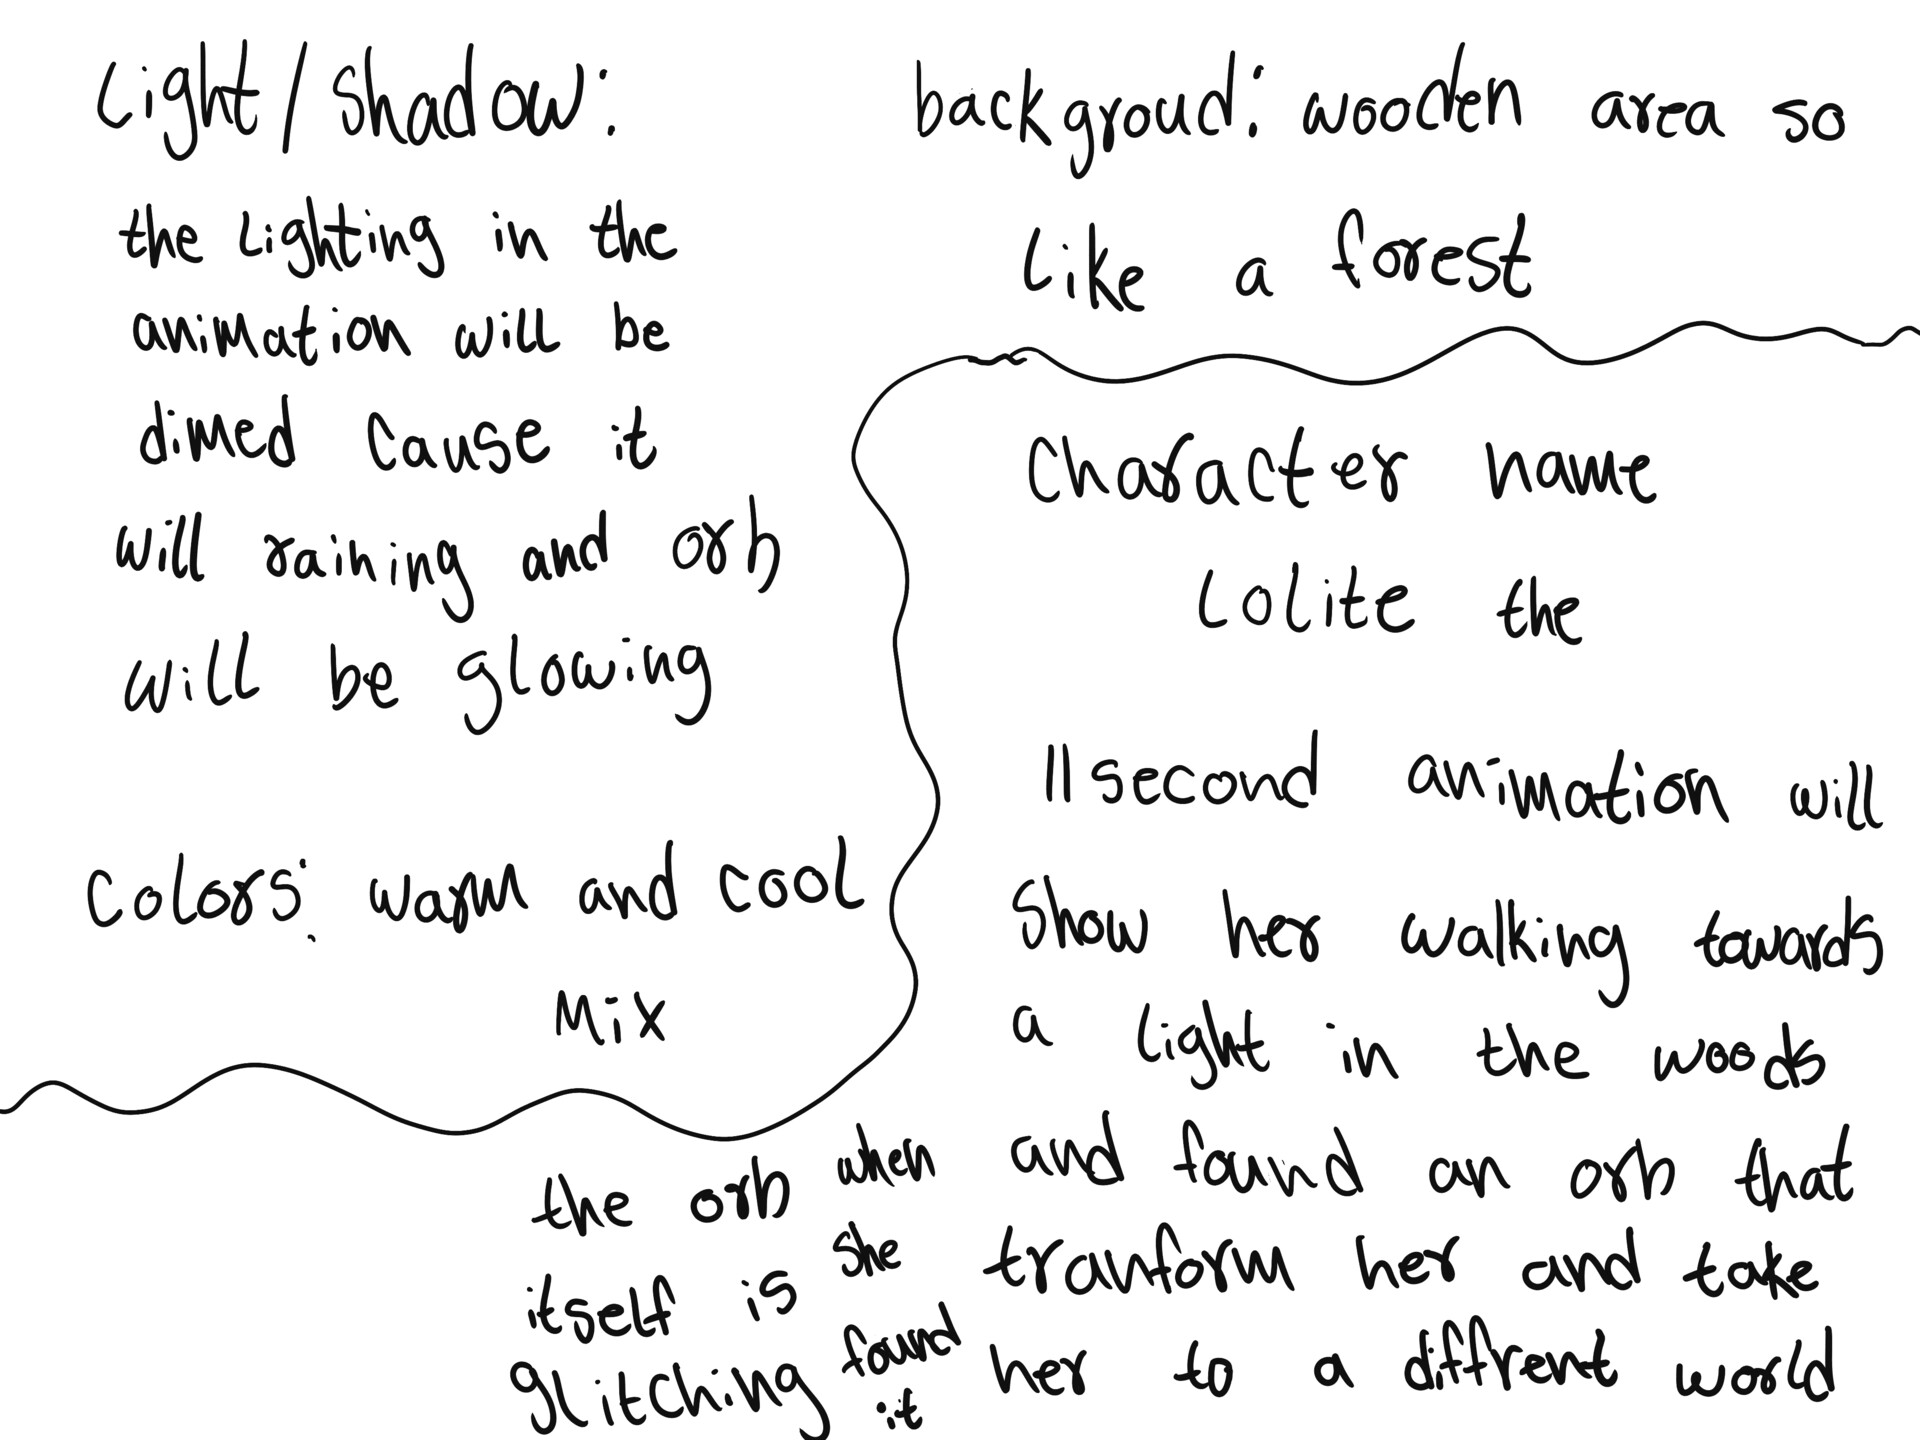 Light/Shadow:
the Lighting in the
animation will be
dimed cause it
will raining and orb
will be glowing
Colors: warm and cool
Mix
backgroud: wooden area so
like a forest
Character name
Lolite the
11 second animation will
Show her walking towards
a light in the woods
and found an orb that
tranform her and take
her to a diffrent world
the orb when
itself is she
glitching found
it